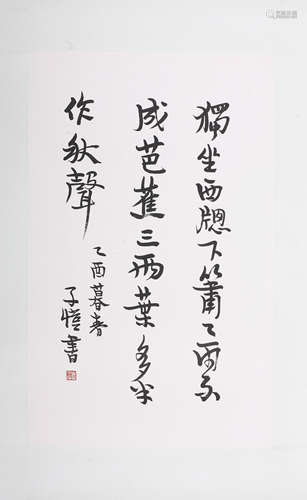 獨坐西窗下蕭〻雨不
成芭蕉三兩葉多半
作秋聲
乙酉暮春
子愷書